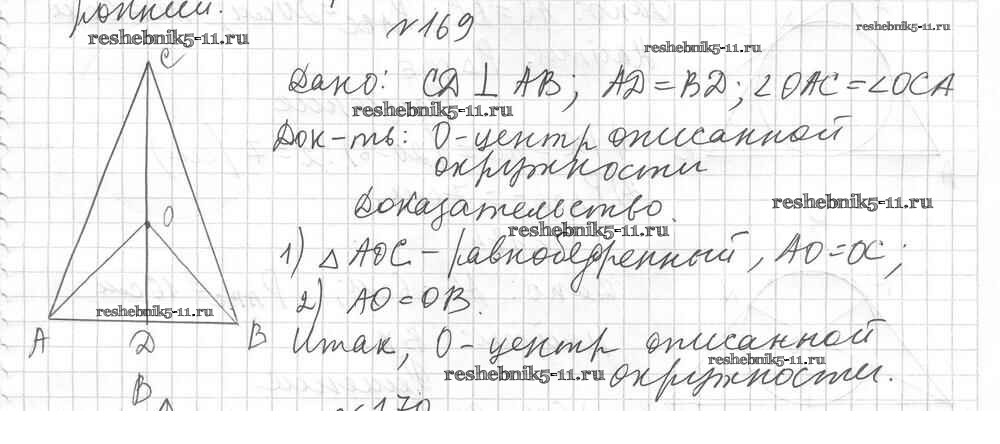 ронний.
reshebnik5-11.ru
№169
reshebnik5-11.ru
reshebnik5-11.ru
Дано: CD ⊥ AB; AD = BD; ∠OAC = ∠OCA
reshebnik5-11.ru
Док-ть: O-центр описанной
окружности
Доказательство.
reshebnik5-11.ru
reshebnik5-11.ru
1) △ AOC - равнобедренный, AO = OC;
2) AO = OB.
Итак, O - центр описанной
reshebnik5-11.ru
reshebnik5-11.ru
окружности.
C
O
reshebnik5-11.ru
A
D
B
B
№170